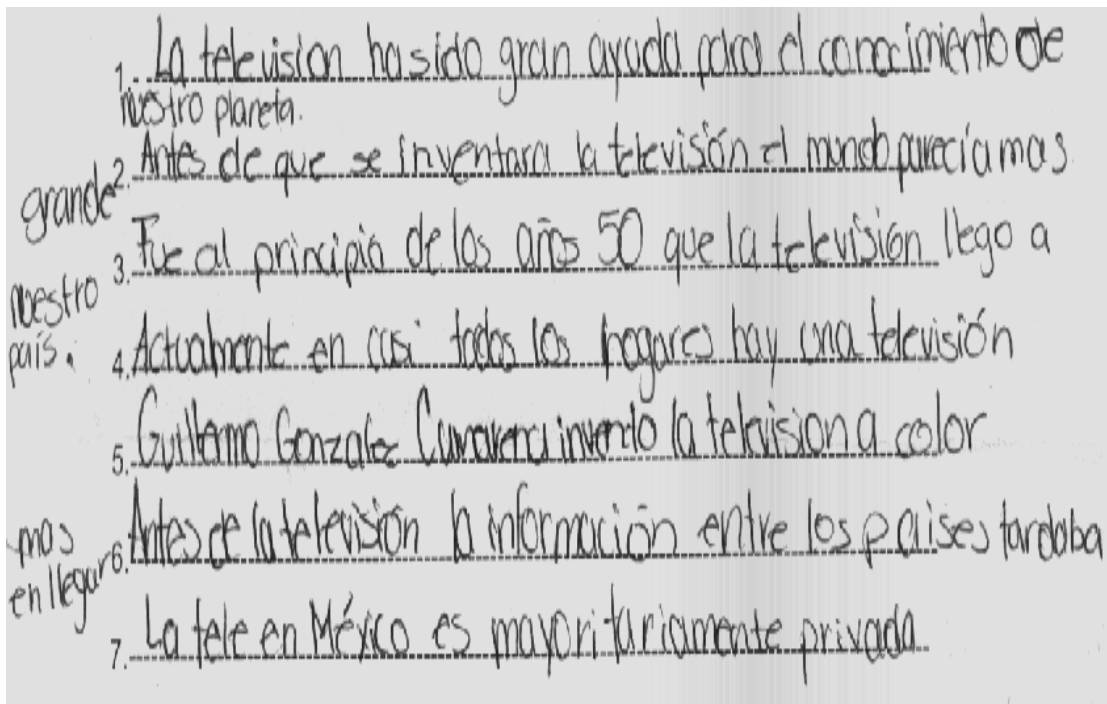 1. La television ha sido gran ayuda para el conocimiento de
nuestro planeta.
2. Antes de que se inventara la televisión el mundo parecía mas
grande
3. Fue al principio de los años 50 que la televisión llego a
nuestro
país.
4. Actualmente en casi todos los hogares hay una televisión
5. Guillermo Gonzalez Camarena invento la television a color
6. Antes de la televisión la información entre los paises tardaba
mas
en llegar
7. La tele en México es mayoritariamente privada